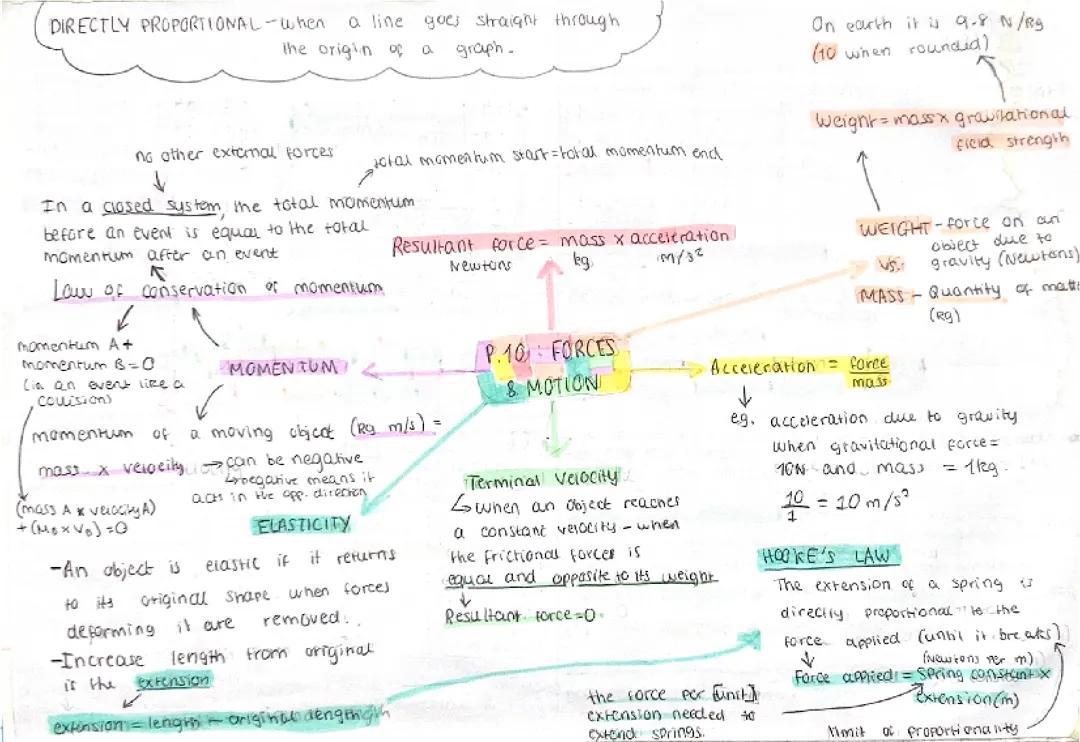 DIRECTLY PROPORTIONAL - when a line goes straight through
the origin of a graph.
On earth it is 9.8 N/kg
(10 when rounded)
Weight = mass x gravitational
field strength
no other external forces
total momentum start = total momentum end
In a closed system, the total momentum
before an event is equal to the total
momentum after an event
Law of conservation of momentum
Resultant force = mass x acceleration
Newtons kg m/s²
WEIGHT - force on an
object due to
gravity (Newtons)
VS.
MASS - Quantity of matt
(kg)
momentum A +
momentum B = 0
(in an event like a
collision)
MOMENTUM
P.10 : FORCES
& MOTION
Acceleration = force
mass
eg. acceleration due to gravity
when gravitational force =
10N and mass = 1kg.
10
1 = 10 m/s²
momentum of a moving object (kg m/s) =
mass x velocity → can be negative
↳ negative means it
acts in the opp. direction
(mass A x velocity A)
+ (MB x VB) = 0
ELASTICITY
-An object is elastic if it returns
to its original shape when forces
deforming it are removed.
-Increase length from original
is the extension
extension = length - original length
Terminal Velocity
↳ when an object reaches
a constant velocity - when
the frictional forces is
equal and opposite to its weight
Resultant force = 0.
HOOKE'S LAW
The extension of a spring is
directly proportional to the
force applied (until it breaks)
(Newtons per m)
Force applied = spring constant x
extension (m)
the force per [unit]
extension needed to
extend springs.
limit of proportionality